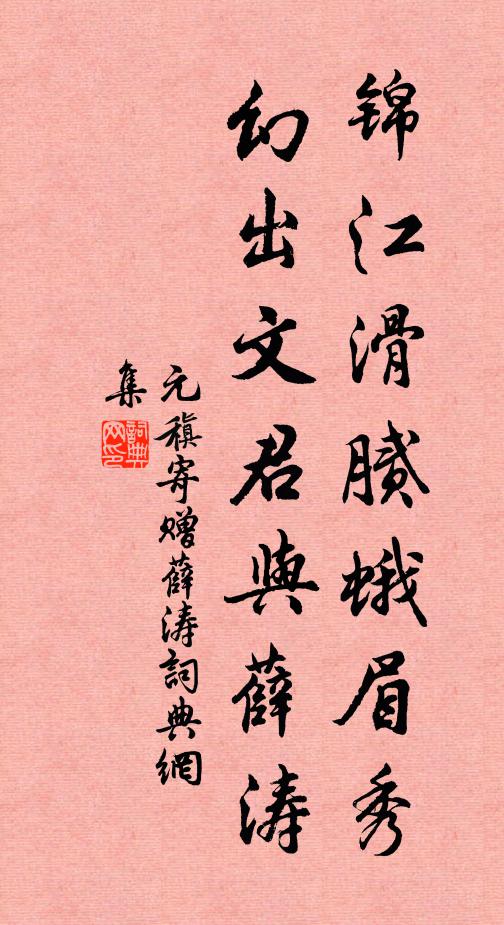 锦江滑腻蛾眉秀
幻出文君與薛涛
元稹寄赠薛涛詞典網
集
詞典网印